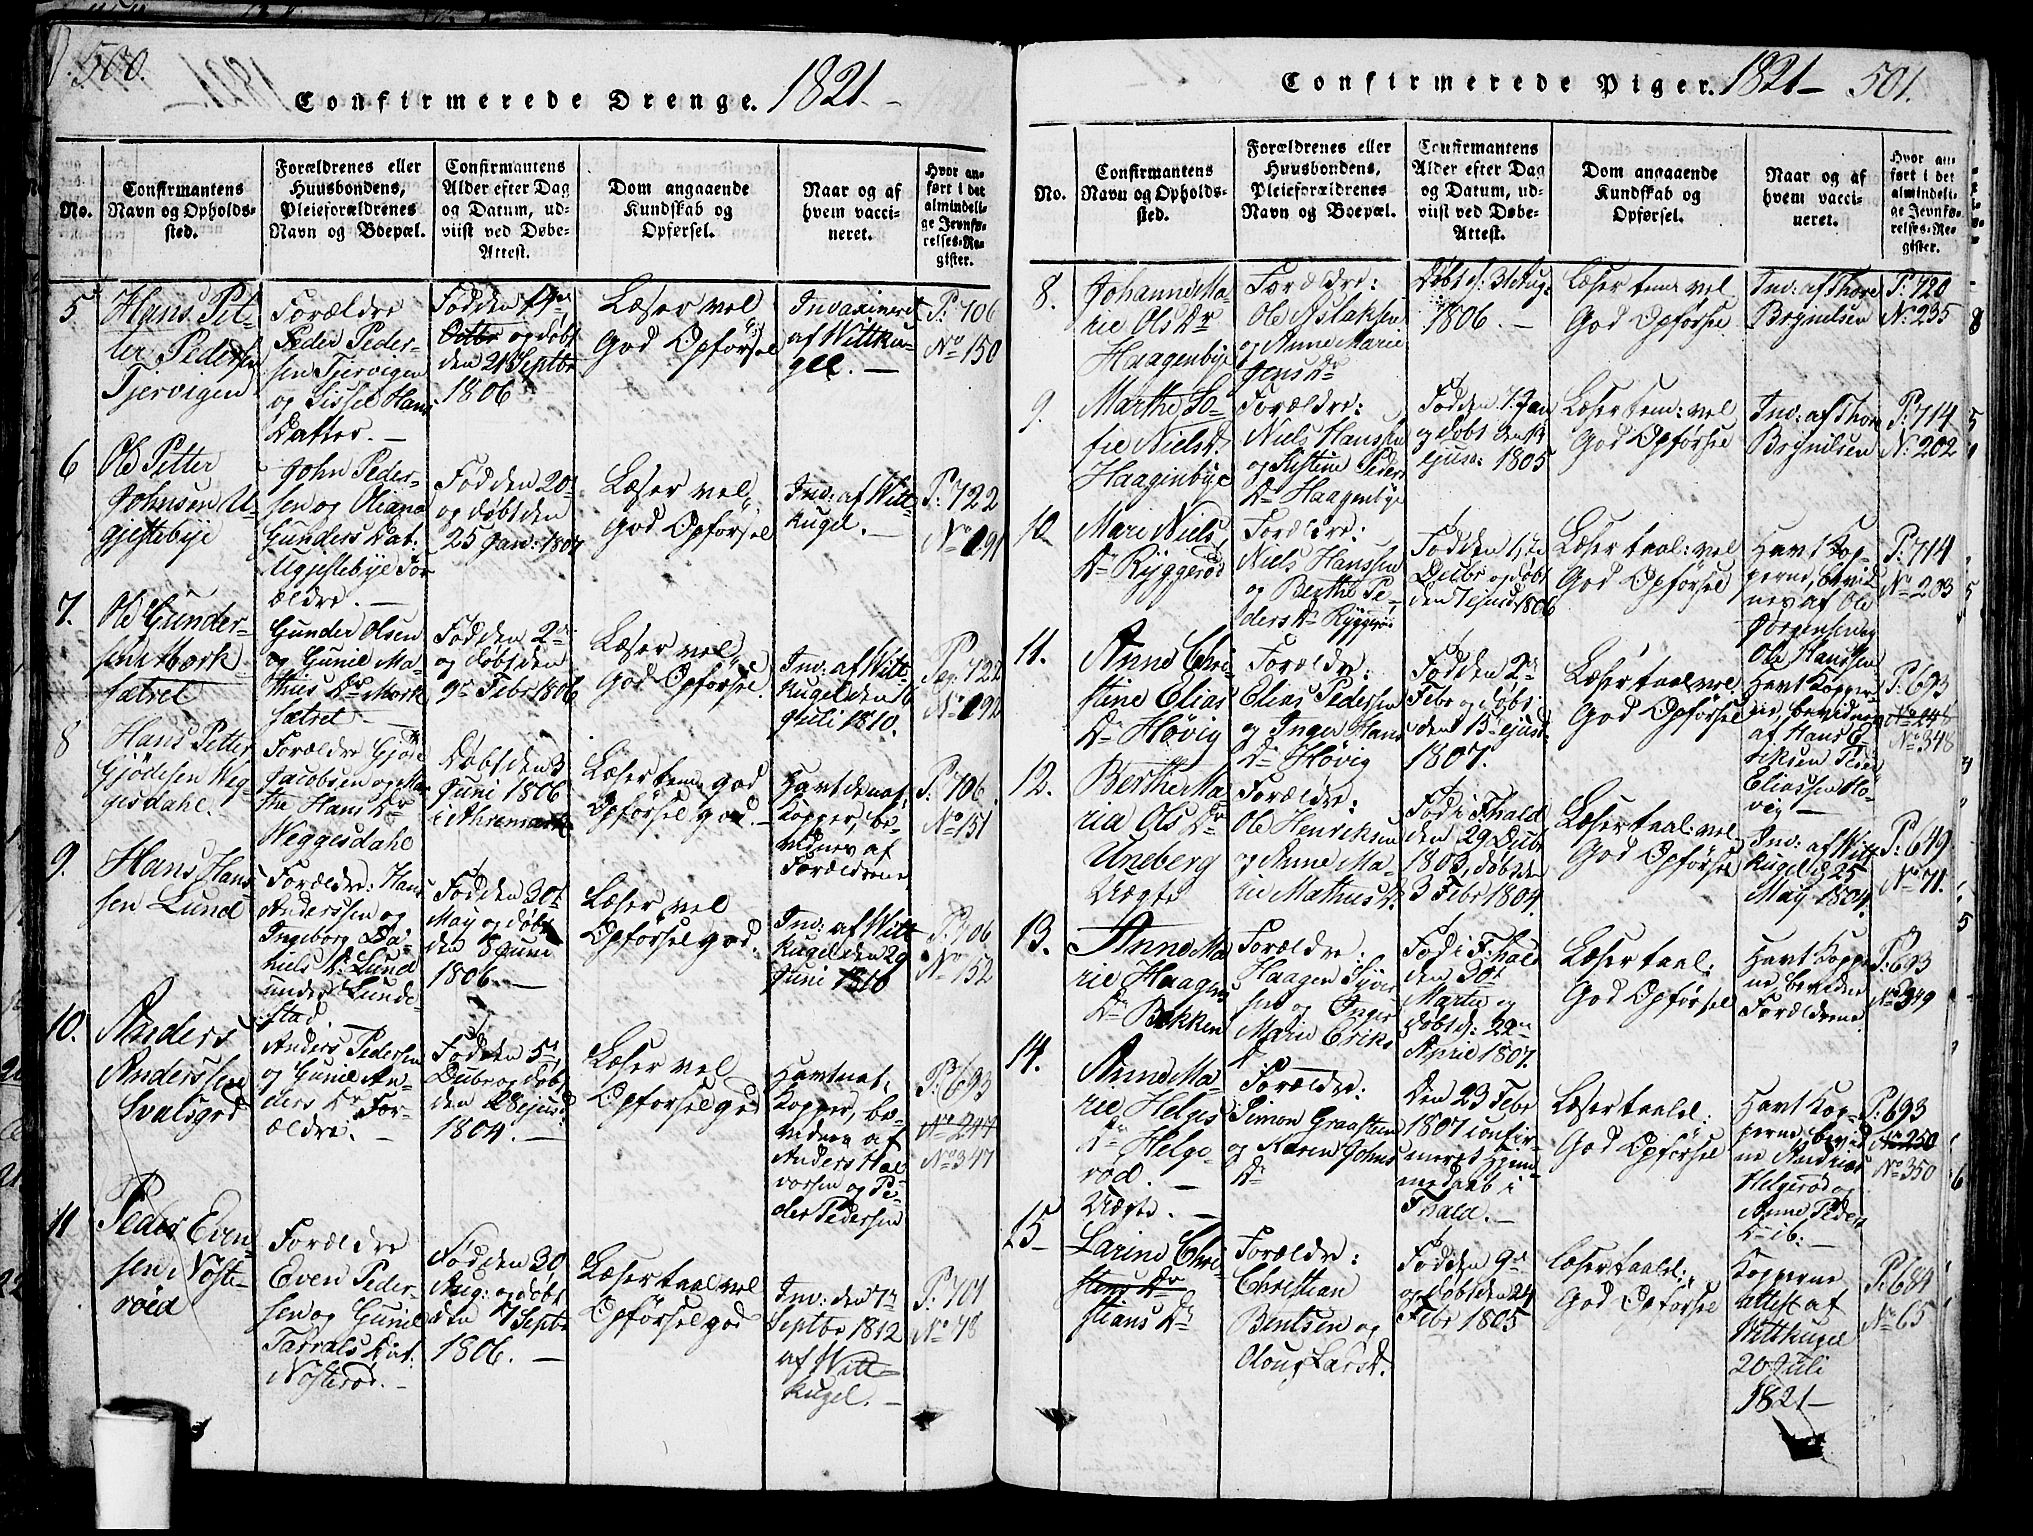 500.
Confirmerede Drenge. 1821-
No.
Confirmantens
Navn og Opholds-
sted.
Forældrenes eller
Huusbondens,
Pleieforældrenes
Navn og Boepæl.
Confirmantens
Alder efter Dag
og Datum, ud-
viist ved Døbe-
Attest.
Dom angaaende
Kundskab og
Opførsel.
Naar og af
hvem vacci-
neret.
Hvor an-
ført i det
almindeli-
ge Jevnfø-
relses-Re-
gister.
5
Hans Pit-
ter Pedersen
Tjervigen
Forældre
Peder Peder-
sen Tjervigen
og Sissel Hans
Datter. -
Fød den
Octbr og døbt
den 21 Septbr
1806
Læser vel
God Opførsel
Invaxineret
af Wittku-
gel. -
P: 706
No 150
6
Ole Petter
Johnsen U-
gjestebye
John Peder-
sen og Oliana
Gunders Dat:
Ugjestebye For
ældre. -
Fød den 20
og døbt den
25 Jan: 1807
Læser vel
God Opførsel
Ind: af Witt-
kugel. -
P: 722
No 191
7.
Ole Gunder-
sen Mørk-
sætret
Gunder Olsen
og Gunil Ma-
this Dr Mørk
sætret -
Fød den 2
og døbt den
9 Febr 1806
Læser vel
God Opførsel.
Ind: af Witt-
kugel den 16
Juli 1810.
Pag. 722
No 192
8
Hans Petter
Gjødesen Weg-
gesdahl.
Forældre Gjøde
Jacobsen og Mar
the Hans Dr
Weggesdahl
Døbt den 3
Juni 1806
i Ahremark
Læser tem. god
Opførsel god. -
Havt de nat:
Kopper, be-
vidnev af
Forældrene
P: 706.
No 151
9.
Hans Han-
sen Lund
Forældre: Hans
Anderssen og
Ingeborg Da-
niels D: Lund
under Lunde-
stad.
Fød den 30
May og døbt
den 8 Juni
1806. -
Læser vel
Opførsel god.
Ind: af Witt
kugel den 29
Juni 1810
P: 706
No 152
10.
Anders
Anderssen
Svalsgod
Anders Pedersen
og Gunil An-
ders Dr For-
ældre. -
Fød den 5
Dcbr og døbt
den 28 ejusd
1804. -
Læser vel
Opførsel god
Havt nat:
Kopper, be-
vidnes af
Anders Hal
vorsen og Pe-
der Pedersen
P: 693
No 247
No 347
11
Peder Even-
sen Nøste-
rød
Forældre
Even Peder-
sen og Gunil
Tarrals Dat.
Nøsterød. -
Fød den 30
Aug: og døbt
den 7 Septbr
1806. -
Læser taal. vel
Opførsel god
Ind: den 7
Septbr 1812
af Witt-
kugel. -
P: 701
No 48
Confirmerede Piger. 1821- 501.
No.
Confirmantens
Navn og Opholds-
sted.
Forældrenes eller
Huusbondens,
Pleieforældrenes
Navn og Boepæl.
Confirmantens
Alder efter Dag
og Datum, ud-
viist ved Døbe-
Attest.
Dom angaaende
Kundskab og
Opførsel.
Naar og af
hvem vacci-
neret.
Hvor an-
ført i det
almindeli-
ge Jevnfø-
relses-Re-
gister.
8.
Johanne Ma-
rie Ols Dr
Haagenbye
Forældre:
Ole Aslaksen
og Anne Marie
Jens Dr
Døbt d: 31 Aug.
1806. -
Læser tem vel
God Opførsel
Ind: af Thore
Brynilsen
P: 720
No: 235
9.
Marthe So-
fie Niels D
Haagenbye
Forældre:
Niels Hanssen
og Kistine Peders
Dr Haagenbye
Fød den 7 Jan
og døbt den 13
ejusd: 1805
Læser tem: vel
God Opførsel
Ind: af Thore
Brynilsen
P: 714
No 202
10.
Mari Niels
Dr Ryggerød
Forældre:
Niels Hanssen
og Berthe Pe-
ders Dr Ryggerød
Fød den 1
Dcbr og døbt
den 7 ejusd 1806
Læser taal: vel
God Opførsel
Havt Kop-
perne, bevid
nes af Ole
Jørgensen og
Ole Hanssen
P: 714
No 203
11.
Anne Chri-
stine Elias
Dr Høvig
Forældre:
Elias Pedersen
og Inger Hans
Dr Høvig
Fød den 2
Febr og døbt
den 15 ejusd.
1807.
Læser taal vel
God Opførsel
Havt Kopper-
ne, bevidnes
af Hans E-
riksen
Eliassen Hø-
vig -
P: 693
No 248
No 348
12.
Berthe Ma-
ria Ols Dr
Uneberg
Uægte
Forældre:
Ole Henriksen
og Anne Ma-
rie Mathius D.
Fød i Fhald
den 29 Dcbr
1803, døbt den
3 Febr 1804.
Læser taal: vel
God Opførsel
Ind: af Witt
kugel d 25
May 1804.
P: 649
No 71.
13.
Anne Ma-
rie Haagens
Dr Bakken
Forældre:
Haagen Syver
sen og Inger
Marie Eriks
D -
Fød i F:hald
den 30
Martii og
døbt d: 22
April 1807.
Læser taal:
God Opførsel
Havt Kopper
ne, bevidne
Forældrene.
P: 693
No 349
14.
Anne Ma-
rie Helges
Dr Helge-
rød. -
Uægte. -
Forældre:
Simon Graasteen
og Karen Johns
Dr
Den 23 Febr
1807 confir
meret Hjem
medaab i
Fhald. -
Læser taalel:
God Opførsel
Havt Kop-
perne, bevid
ne Andreas
Helgerød og
Anne Peders
D ib: -
P: 693
No 250
No 350
15-
Larine Chri-
stens Dr
stians Dr
Forældre:
Christian
Bentsen og
Oloug Lars D.
Fød den 9
og døbt den 24
Febr 1805
Læser taalel:
God Opførsel
Kopperne
attest af
Wittkugel
20 Juli
1821-
P: 684
No 65